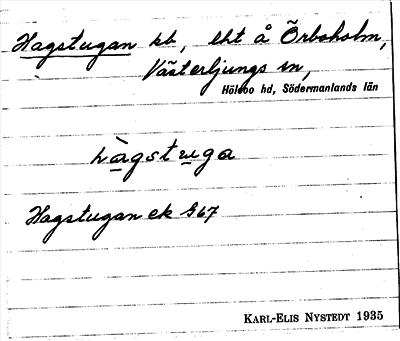 Hagstugan bt, lht å Örboholm,
Västerljungs sn,
Hölebo hd, Södermanlands län
hàgstuga
Hagstugan ek G67
KARL-ELIS NYSTEDT 1935